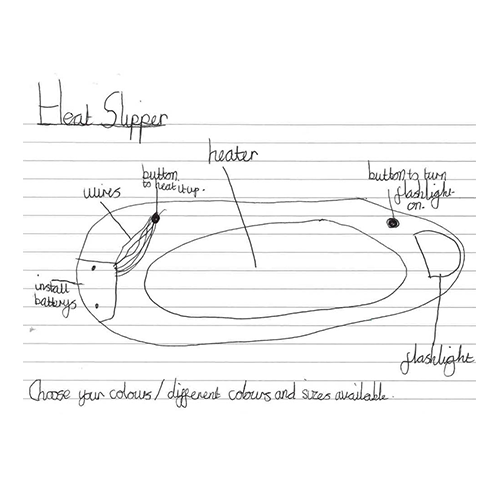 Heat Slipper
heater
button
to heat it up.
wires
button to turn
flashlight
on.
install
batterys
flashlight
Choose your colours / different colours and sizes available.